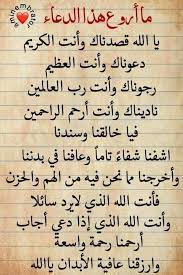 eminembrator
ما أروع هذا الدعاء
يا الله قصدناك وأنت الكريم
دعوناك وأنت العظيم
رجوناك وأنت رب العالمين
ناديناك وأنت أرحم الراحمين
فيا خالقنا وسندنا
اشفنا شفاءً تاماً وعافنا في بدننا
وأخرجنا مما نحن فيه من الهم والحزن
فأنت الله الذي لايرد سائلا
وأنت الله الذي إذا دعي أجاب
أرحمنا رحمة واسعة
وارزقنا عافية الأبدان ياالله